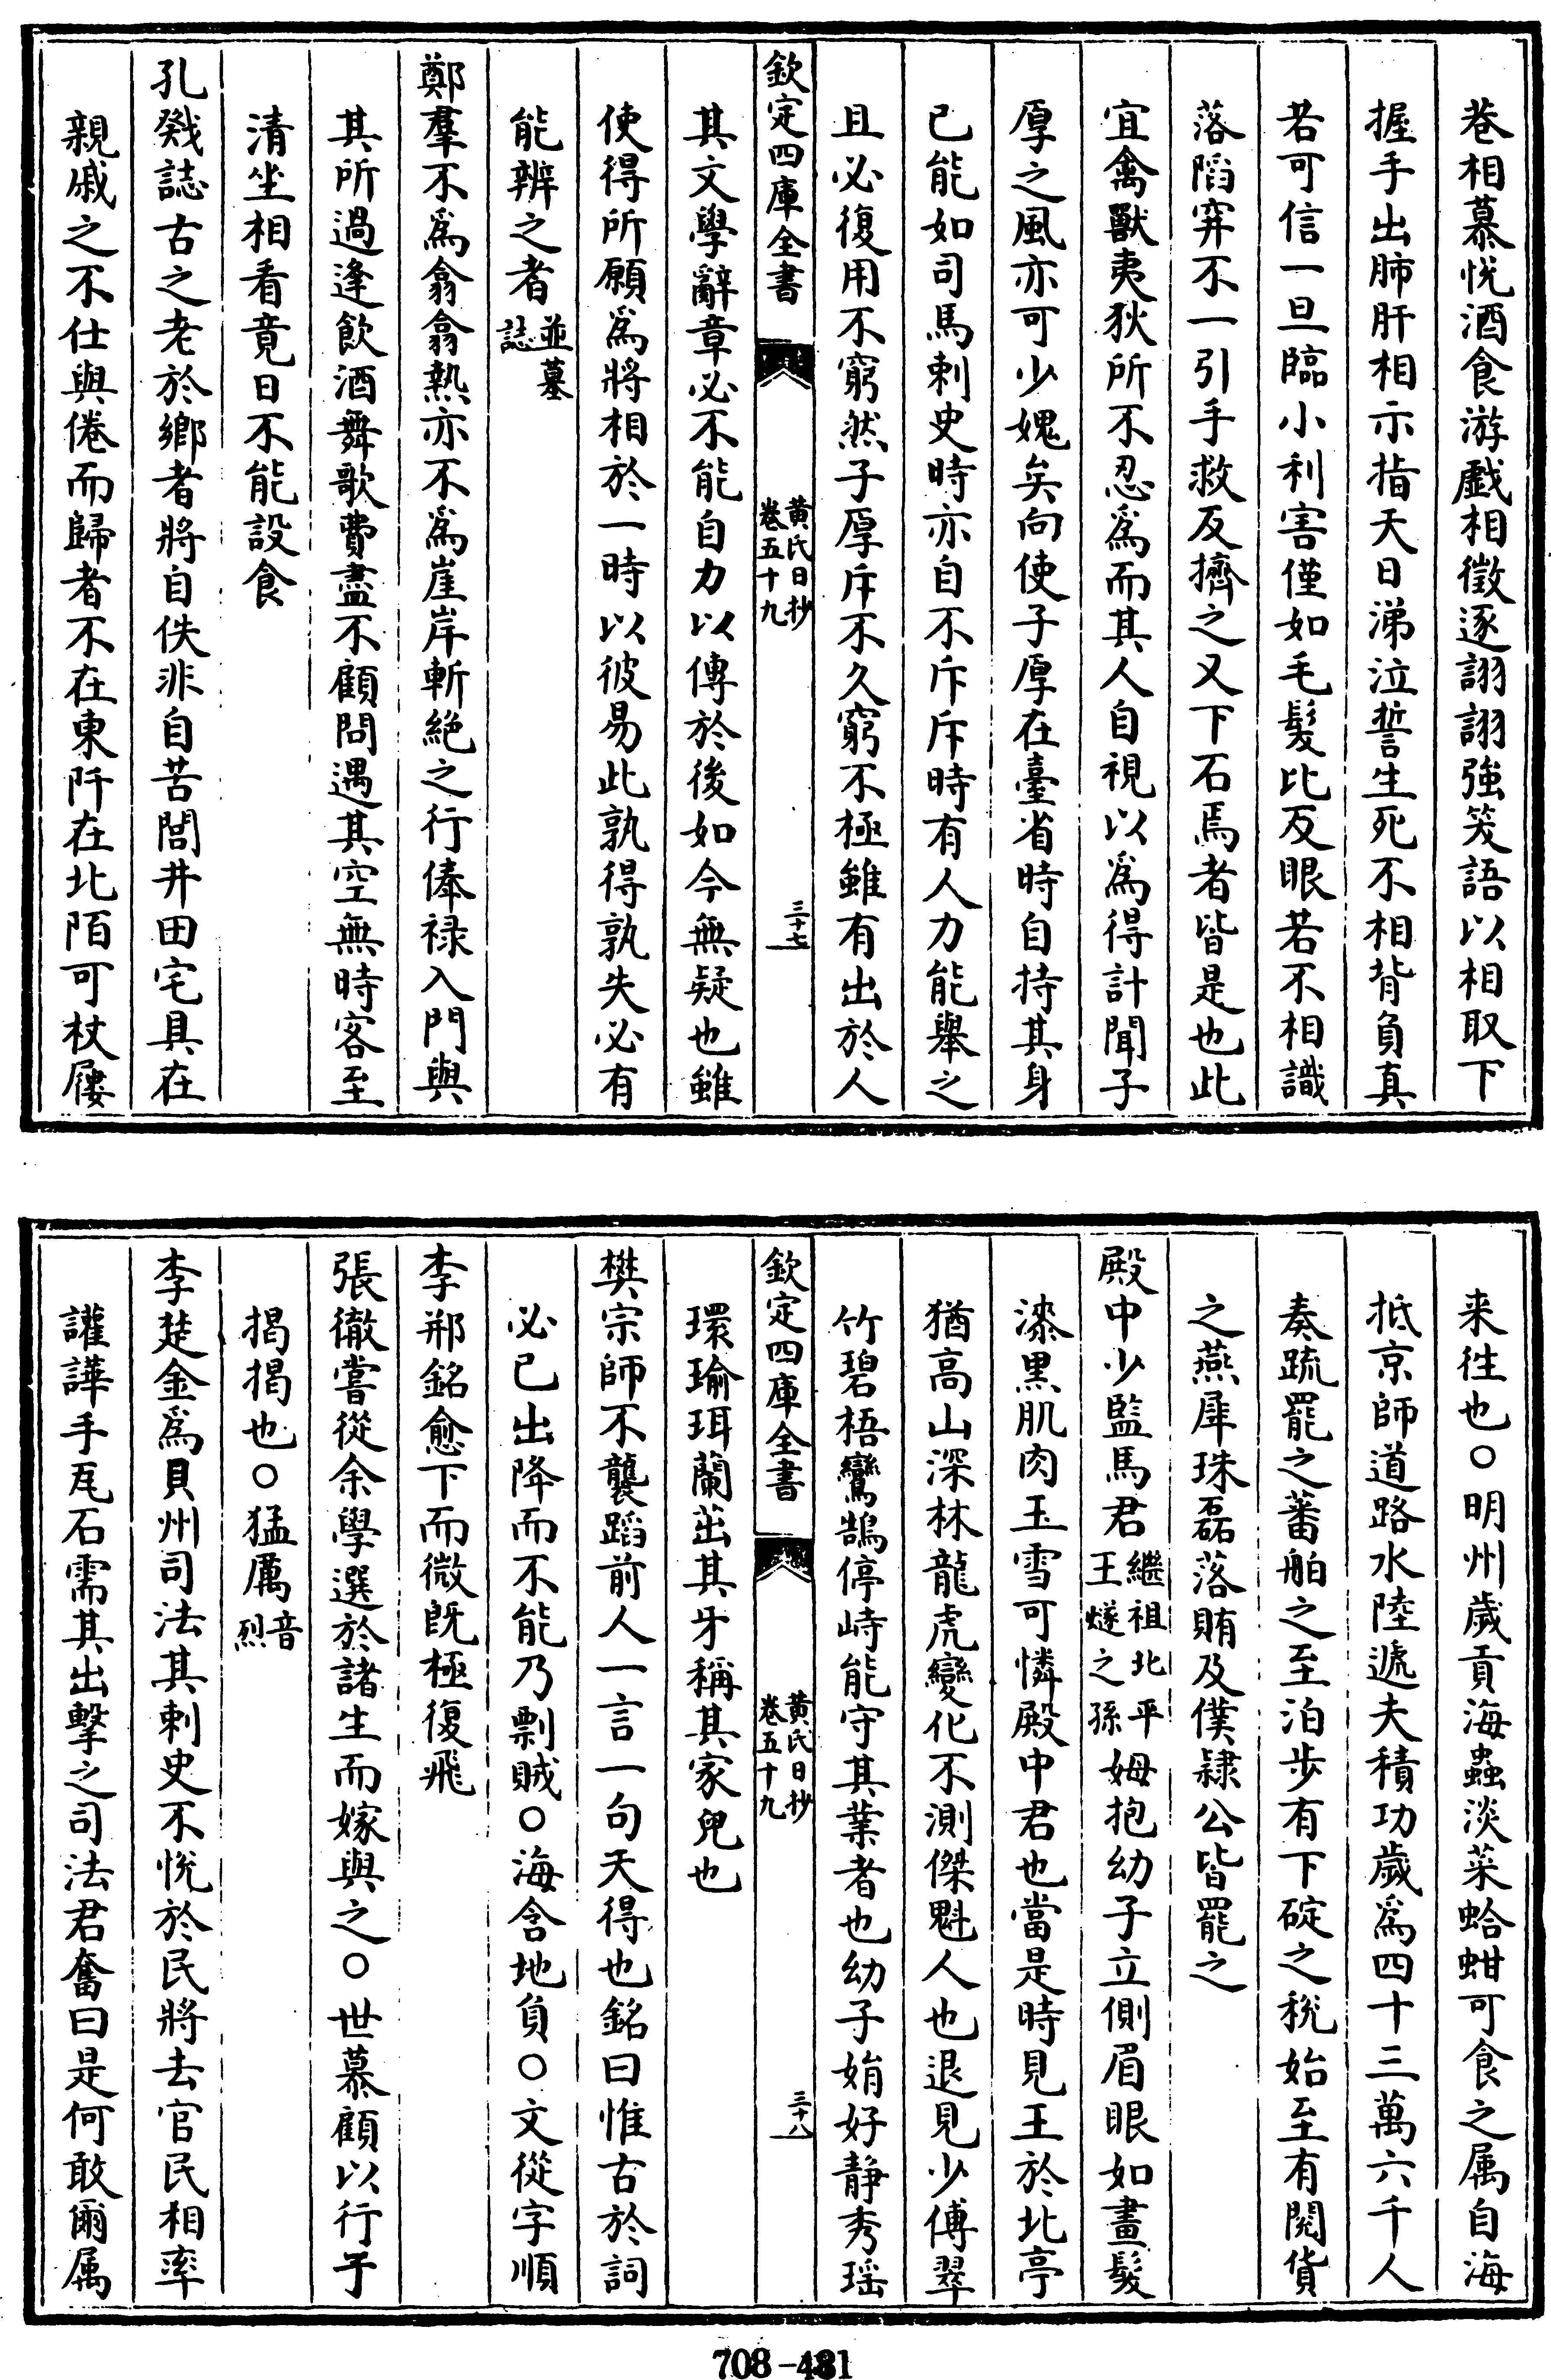 巷相慕悅酒食游戲相徵逐詡詡強笑語以相取下
握手出肺肝相示指天日涕泣誓生死不相背負真
若可信一旦臨小利害僅如毛髮比反眼若不相識
落䧟穽不一引手救反擠之又下石焉者皆是也此
宜禽獸夷狄所不忍為而其人自視以為得計聞子
厚之風亦可少媿矣向使子厚在臺省時自持其身
已能如司馬刺史時亦自不斥斥時有人力能舉之
且必復用不窮然子厚斥不久窮不極雖有出於人
欽定四庫全書
黄氏日抄
卷五十九
三十七
其文學辭章必不能自力以傳於後如今無疑也雖
使得所願為將相於一時以彼易此孰得孰失必有
能辨之者並墓誌
鄭羣不為翕翕熱亦不為崖岸斬絶之行俸禄入門與
其所過逢飲酒舞歌費盡不顧問遇其空無時客至
清坐相看竟日不能設食
孔戣誌古之老於鄉者將自佚非自苦閭井田宅具在
親戚之不仕與倦而歸者不在東阡在北陌可杖屨
来徃也○明州歲貢海蟲淡菜蛤蚶可食之属自海
抵京師道路水陸遞夫積功歲為四十三萬六千人
奏疏罷之蕃舶之至泊步有下碇之稅始至有閱貨
之燕犀珠磊落賄及僕隸公皆罷之
殿中少監馬君繼祖北平王燧之孫姆抱幼子立側眉眼如畫髮
漆黒肌肉玉雪可憐殿中君也當是時見王於北亭
猶高山深林龍虎變化不測傑魁人也退見少傅翠
竹碧梧鸞鵠停峙能守其業者也幼子娟好静秀瑶
欽定四庫全書
黄氏日抄
卷五十九
三十八
環瑜珥蘭茁其牙稱其家兒也
樊宗師不襲蹈前人一言一句天得也銘曰惟古於詞
必已出降而不能乃剽賊○海含地負○文從字順
李邢銘愈下而微旣極復飛
張徹嘗從余學選於諸生而嫁與之○世慕顧以行子
揭揭也○猛厲音烈
李楚金為貝州司法其刺史不悅於民將去官民相率
讙譁手瓦石需其出擊之司法君奮曰是何敢爾属
708-481